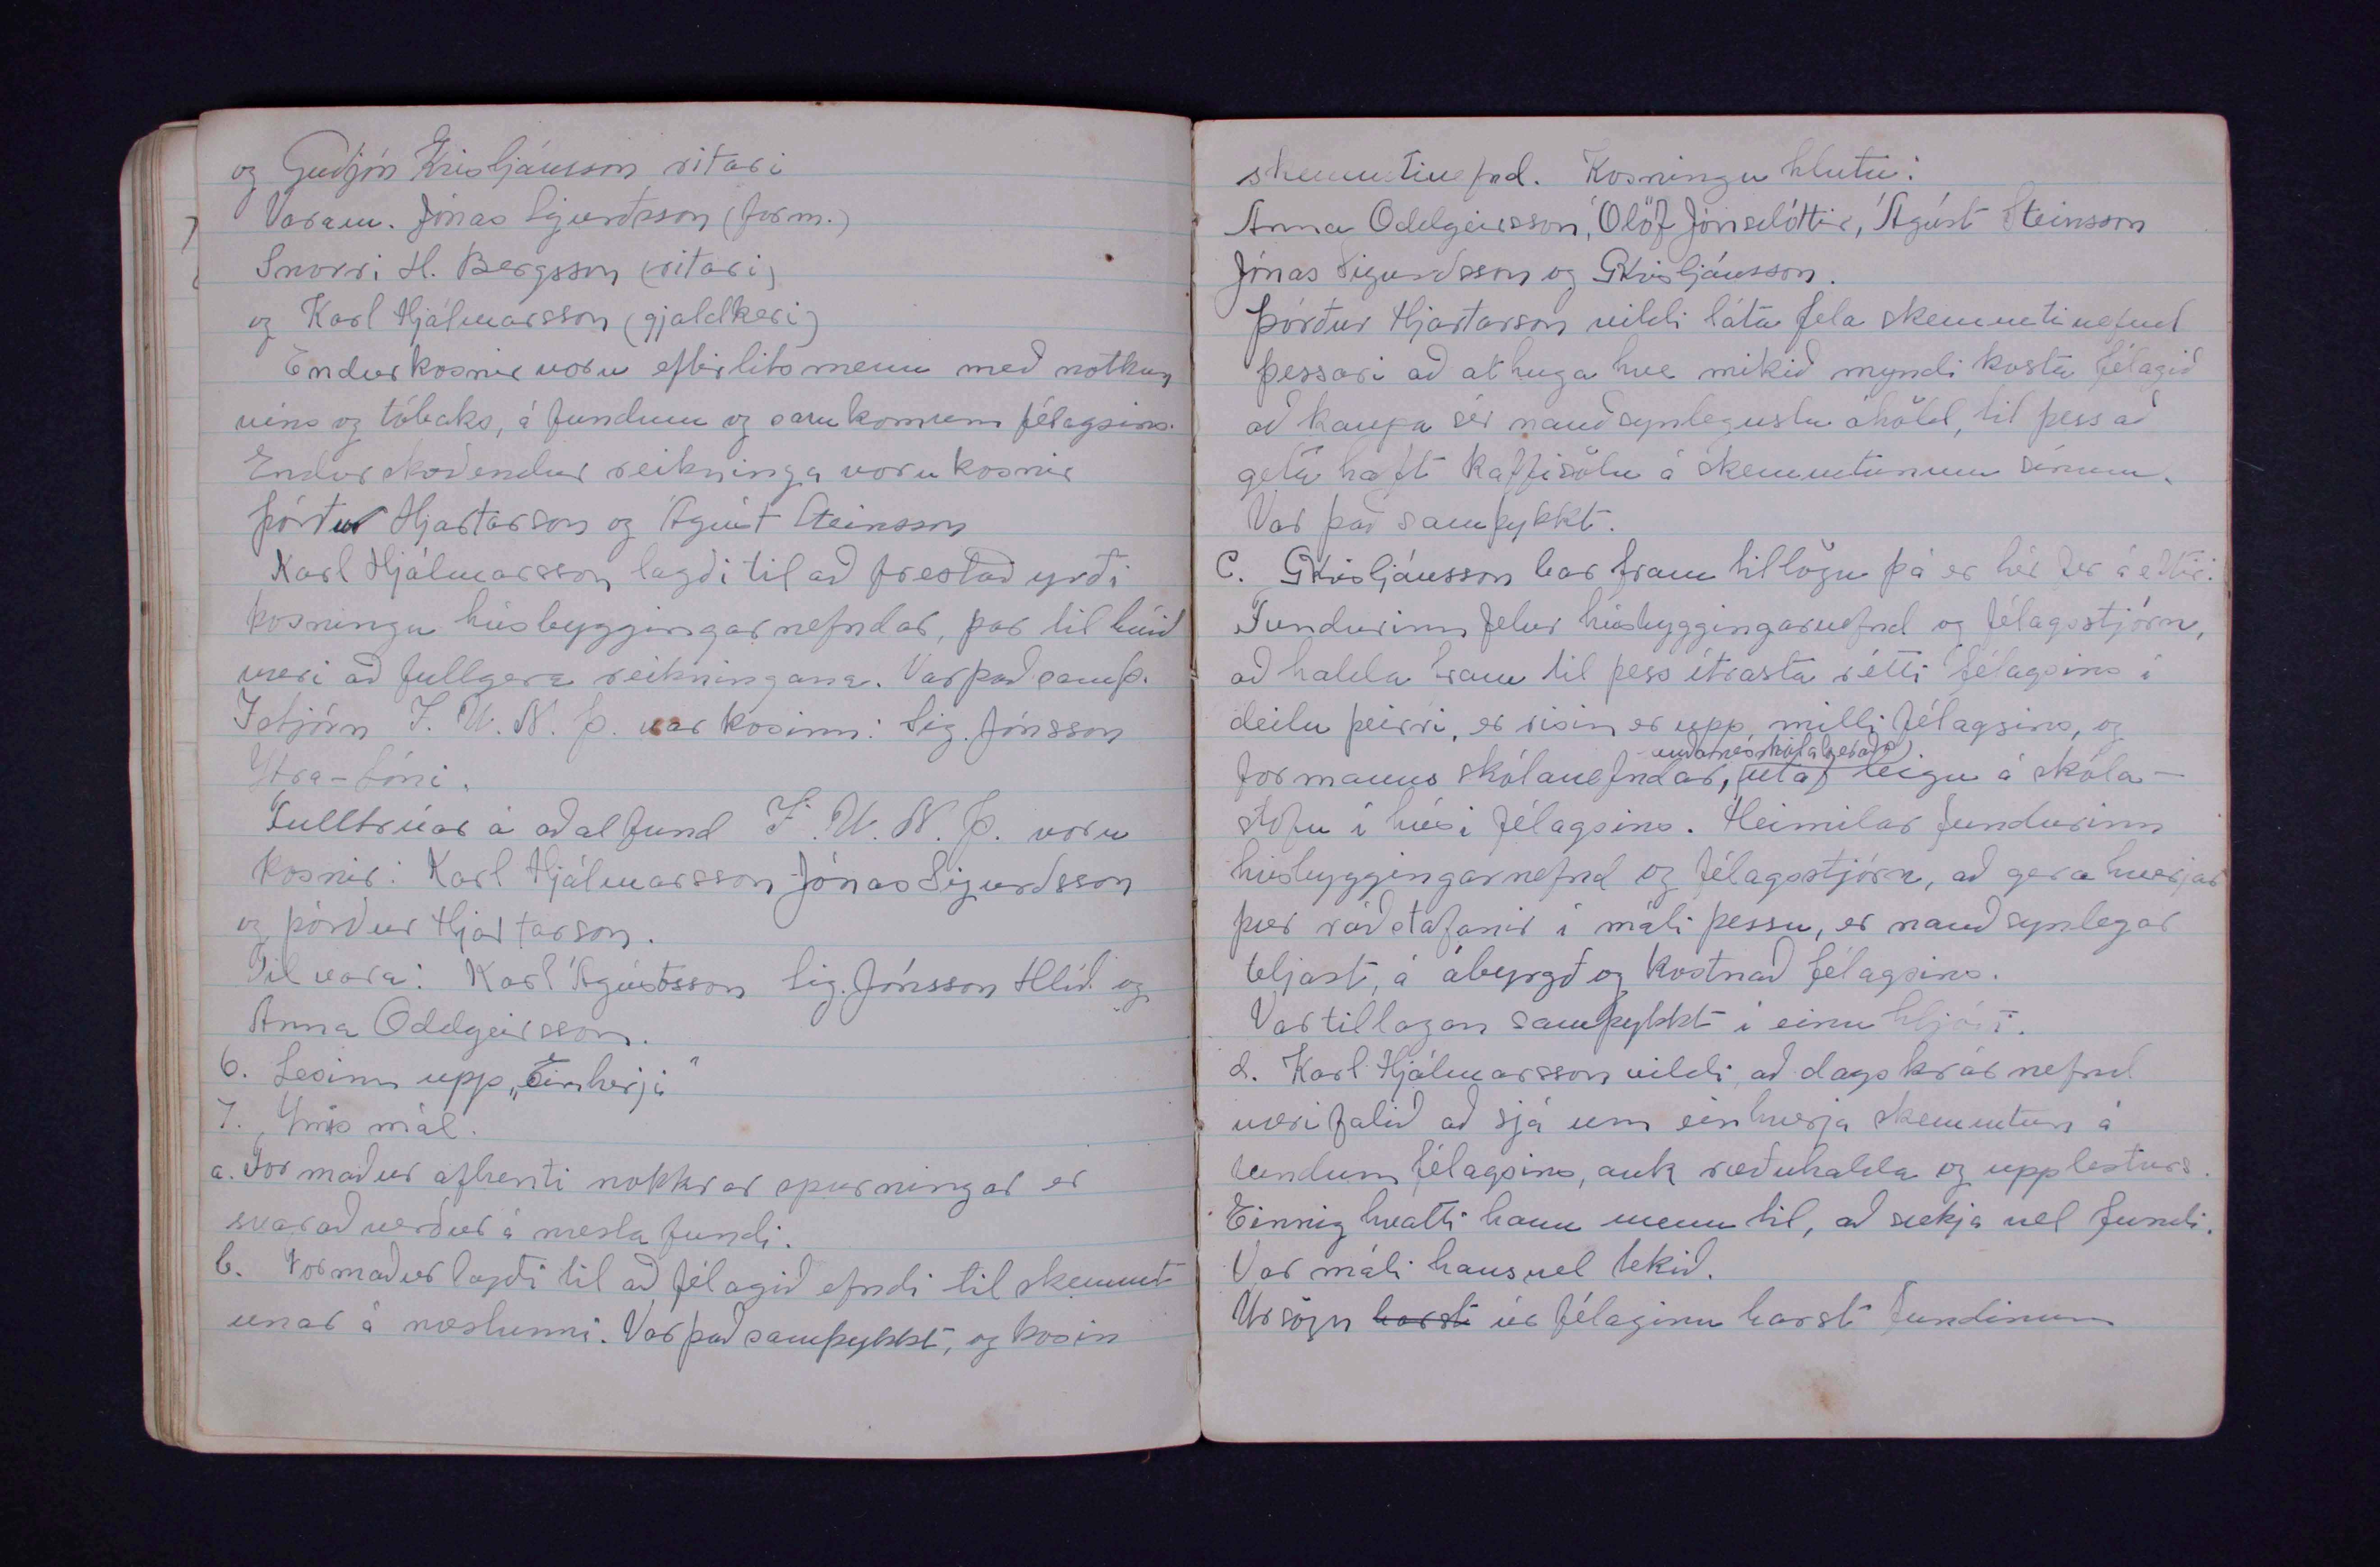 og Guðjón Kristjánsson ritari
Varam. Jónas Sigurðsson (form.)
Snorri H. Bergsson (ritari)
og Karl Hjálmarsson (gjaldkeri)
Endurkosnir voru eftirlitsmenn með nótkun
víns og tóbaks, á fundum og samkomum félagsins.
Endurskoðendur reikninga voru kosnir
Þórður Hjartarson og Ágúst Steinsson
Karl Hjálmarsson lagði til að frestað yrði
kosningu húsbyggingarnefndar, þar til búið
væri að fullgera reikningana. Var það samþ.
Í stjórn F. U. N. Þ. var kosinn: Sig. Jónsson
Ytra-Lóni.
Fulltrúar á aðalfund F. U. N. Þ. voru
kosnir: Karl Hjálmarsson Jónas Sigurðsson
og Þórður Hjartarson.
Til vara: Karl Ágústsson Sig. Jónsson Hlíð og
Anna Oddgeirsson.
6. Lesinn upp „Einherji"
7. Ýmis mál.
a. Formaður afhenti nokkrar spurningar er
svarað verður á næsta fundi.
b. Formaður lagði til að félagið efndi til skemmt
unar á næstunni. Var það samþykkt, og kosin
skemmtinefnd. Kosningu hlutu:
Anna Oddgeirsson, Ólöf Jónsdóttir, Ágúst Steinsson
Jónas Sigurðsson og GKristjánsson.
Þórður Hjartarson vildi láta fela skemmtinefnd
þessari að athuga hve mikið myndi kosta félagið
að kaupa sér nauðsynlegustu áhöld, til þess að
geta haft kaffisölu á skemmtunum sínum.
Var það samþykkt.
C. GKristjánsson bar fram tillögu þá er hér fer á eftir:
Fundurinn felur húsbyggingarnefnd og félagsstjórn,
að halda fram til þess ítrasta rétti félagsins í
deilu þeirri, er risin er upp milli félagsins, og
formanns skólanefndar, útaf leigu á skóla-
stofu í húsi félagsins. Heimilar fundurinn
húsbyggingarnefnd og félagsstjórn, að gera hverjar
þær ráðstafanir í máli þessu, er nauðsynlegar
teljast, á ábyrgð og kostnað félagsins.
Var tillagan samþykkt í einu hljóði.
d. Karl Hjálmarsson vildi að dagskrárnefnd
væri falið að sjá um einhverja skemmtun á
fundum félagsins, auk ræðuhalda og upplesturs.
Einnig hvatti hann menn til, að sækja vel fundi.
Var máli hans vel tekið.
Úrsögn barst úr félaginu barst fundinum